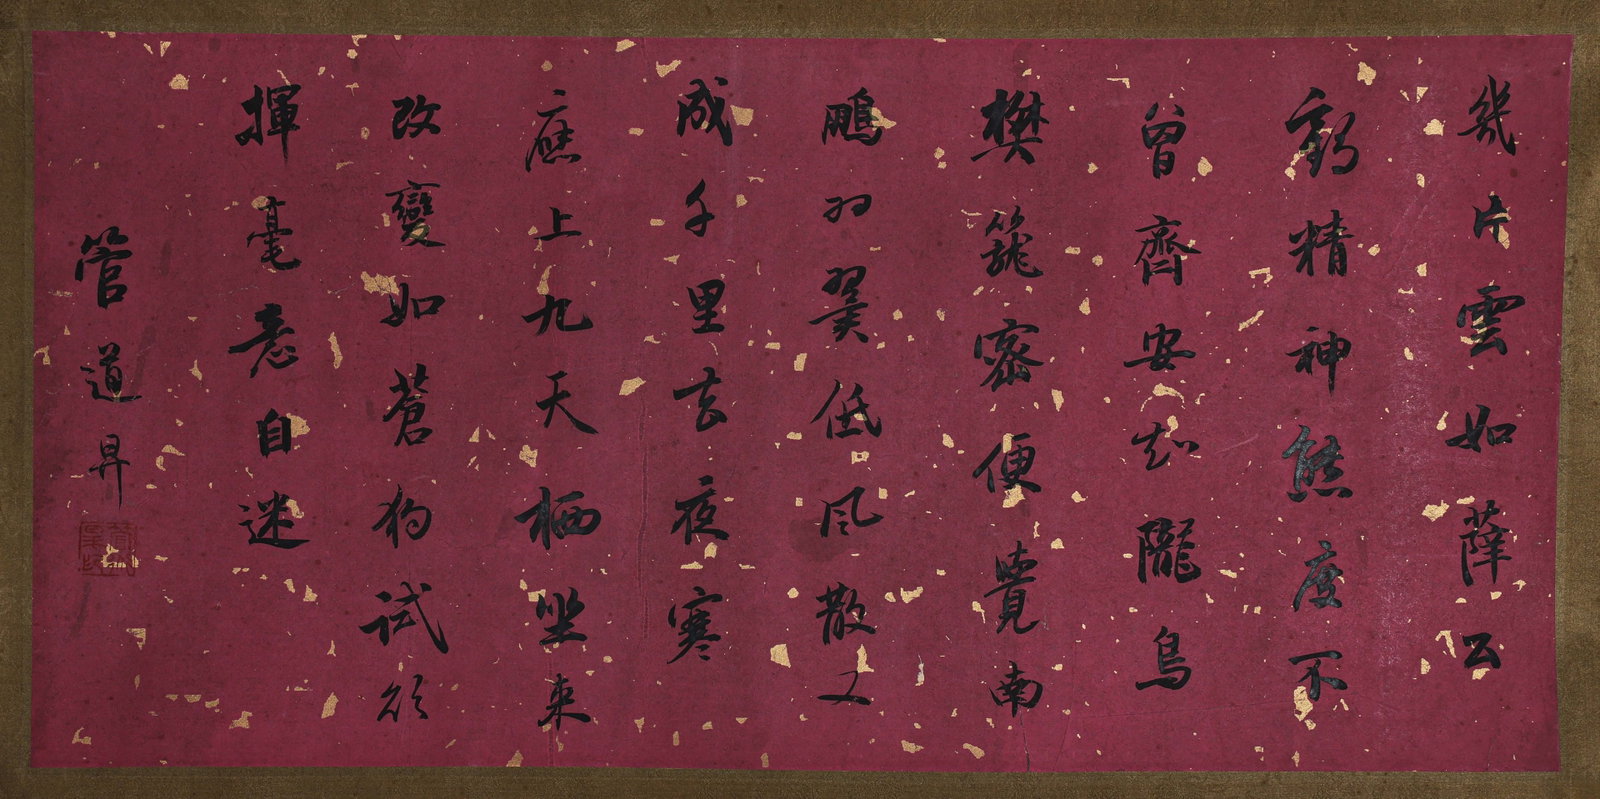 幾片雲如薛公
鶴精神態度不
曾齊安知隴鳥
樊籠密便覺南
鵬羽翼低風散又
成千里去夜寒
應上九天栖坐来
改變如蒼狗試欲
揮毫意自迷
管道昇